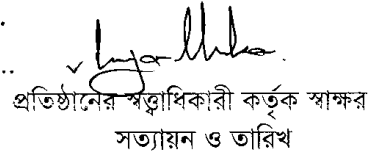 প্রতিষ্ঠানের স্বত্ত্বাধিকারী কর্তৃক স্বাক্ষর
সত্যায়ন ও তারিখ